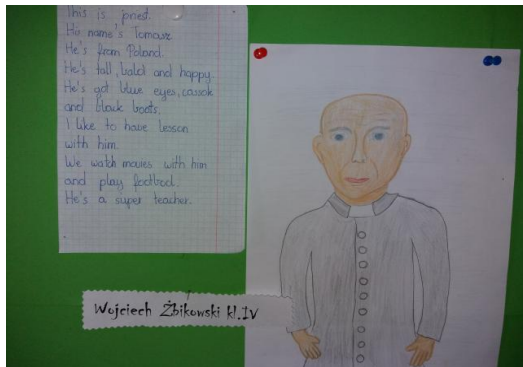 This is priest.
His name's Tomasz.
He's from Poland.
He's tall, bald and happy.
He's got blue eyes, cassok
and black boots.
I like to have lesson
with him.
We watch movies with him
and play football.
He's a super teacher.
Wojciech Żbikowski kl.IV